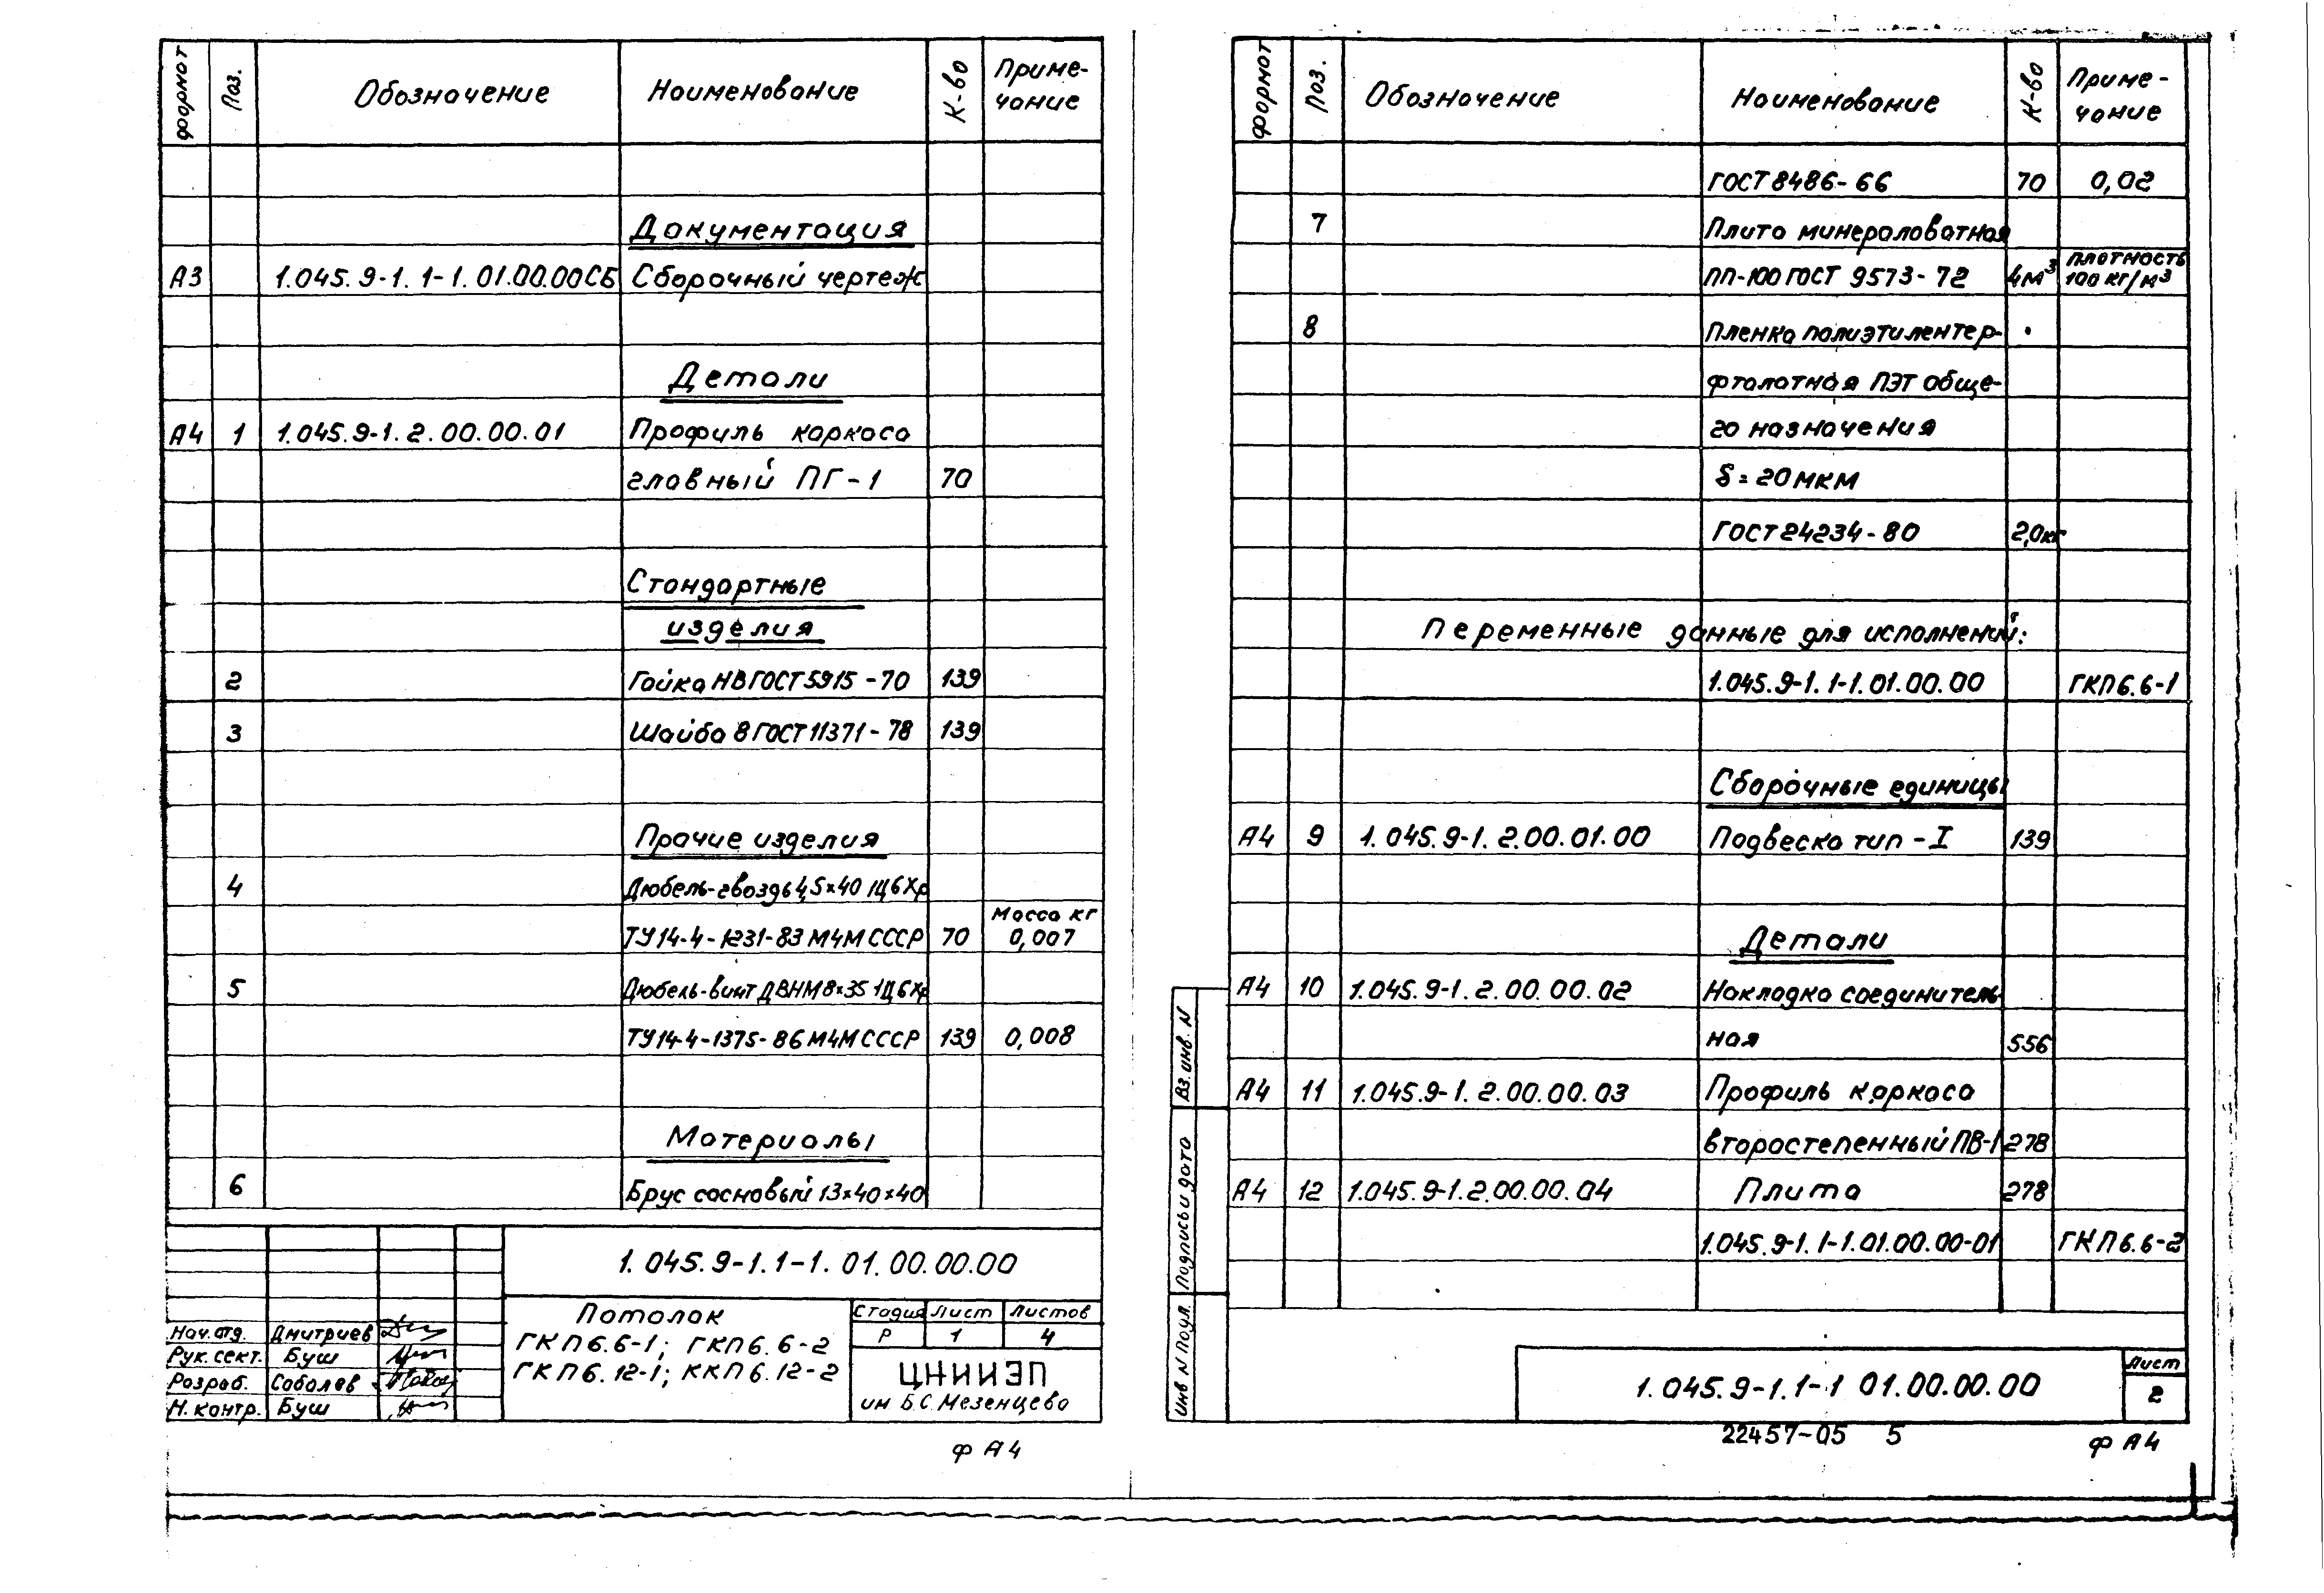 формат Поз. Обозначение Наименование К-во Приме-
чание
Документация
А3 1.045.9-1.1-1.01.00.00СБ Сборочный чертеж
Детали
А4 1 1.045.9-1.2.00.00.01 Профиль каркаса
главный ПГ-1 70
Стандартные
изделия
2 Гайка НВ ГОСТ 5915-70 139
3 Шайба 8 ГОСТ 11371-78 139
Прочие изделия
4 Дюбель-гвоздь 4,5×40 1Ц6Хр
Масса кг
ТУ14-4-1231-83 М4М СССР 70 0,007
5 Дюбель-винт ДВНМ8×35 1Ц6Хр
ТУ14-4-1375-86 М4М СССР 139 0,008
Материалы
6 Брус сосновый 13×40×40
1.045.9-1.1-1.01.00.00.00
Потолок
ГКП6.6-1; ГКП6.6-2
ГКП6.12-1; ККП6.12-2
Стадия Лист Листов
Р 1 4
ЦНИИЭП
им Б.С.Мезенцева
Нач.отд. Дмитриев
Рук.сект. Буш
Разраб. Соболев
Н.контр. Буш
ф А4
формат Поз. Обозначение Наименование К-во Приме-
чание
ГОСТ 8486-66 70 0,02
7 Плита минераловатная
ПП-100 ГОСТ 9573-72 4м³ плотность
100 кг/м³
8 Пленка полиэтилентер-
фталатная ПЭТ обще-
го назначения
δ=20мкм
ГОСТ 24234-80 2,0кг
Переменные данные для исполнений:
1.045.9-1.1-1.01.00.00 ГКП6.6-1
Сборочные единицы
А4 9 1.045.9-1.2.00.01.00 Подвеска тип-I 139
Детали
А4 10 1.045.9-1.2.00.00.02 Накладка соединитель
ная 556
А4 11 1.045.9-1.2.00.00.03 Профиль каркаса
второстепенный ПВ-1 278
А4 12 1.045.9-1.2.00.00.04 Плита 278
1.045.9-1.1-1.01.00.00-01 ГКП6.6-2
Вз.инв.N
Подпись и дата
Инв N Подл.
1.045.9-1.1-1 01.00.00.00
Лист
2
22457-05 5
ф А4